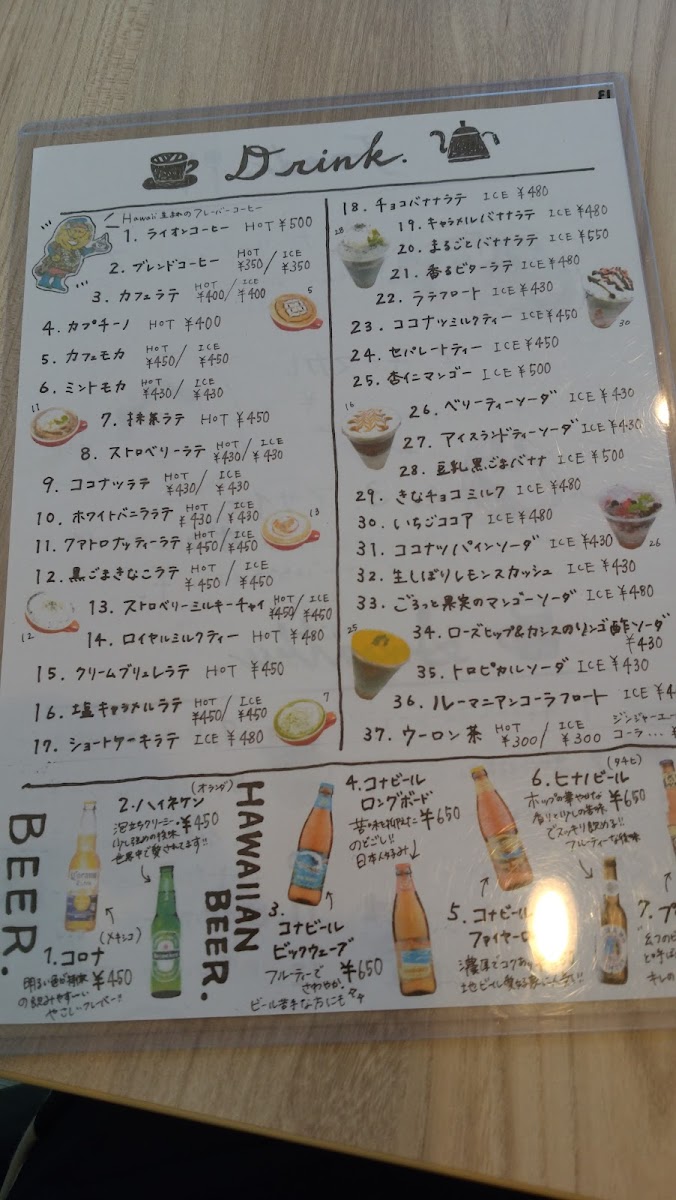 Drink.
Hawaii生まれのフレーバーコーヒー
1. ライオンコーヒー HOT ¥500
2. ブレンドコーヒー HOT ¥350 / ICE ¥350
3. カフェラテ HOT ¥400 / ICE ¥400
4. カプチーノ HOT ¥400
5. カフェモカ HOT ¥450 / ICE ¥450
6. ミントモカ HOT ¥430 / ICE ¥430
7. 抹茶ラテ HOT ¥450
8. ストロベリーラテ HOT ¥430 / ICE ¥430
9. ココナッツラテ HOT ¥430 / ICE ¥430
10. ホワイトバニララテ HOT ¥430 / ICE ¥430
11. クアトロナッティーラテ HOT ¥450 / ICE ¥450
12. 黒ごまきなこラテ HOT ¥450 / ICE ¥450
13. ストロベリーミルキーチャイ HOT ¥450 / ICE ¥450
14. ロイヤルミルクティー HOT ¥480
15. クリームブリュレラテ HOT ¥450
16. 塩キャラメルラテ HOT ¥450 / ICE ¥450
17. ショートケーキラテ ICE ¥480
18. チョコバナナラテ ICE ¥480
19. キャラメルバナナラテ ICE ¥480
20. まるごとバナナラテ ICE ¥550
21. 香るビターラテ ICE ¥480
22. ラテフロート ICE ¥430
23. ココナツミルクティー ICE ¥450
24. セパレートティー ICE ¥450
25. 杏仁マンゴー ICE ¥500
26. ベリーティーソーダ ICE ¥430
27. アイスランドティーソーダ ICE ¥430
28. 豆乳黒ごまバナナ ICE ¥500
29. きなチョコミルク ICE ¥480
30. いちごココア ICE ¥480
31. ココナツパインソーダ ICE ¥430
32. 生しぼりレモンスカッシュ ICE ¥430
33. ごろっと果実のマンゴーソーダ ICE ¥480
34. ローズヒップ&カシスのリンゴ酢ソーダ
¥430
35. トロピカルソーダ ICE ¥430
36. ルーマニアンコーラフロート ICE
37. ウーロン茶 HOT ¥300 / ICE ¥300
ジンジャーエー
コーラ...
BEER.
1. コロナ (メキシコ)
¥450
やさしいフレーバー!!
2. ハイネケン (オランダ)
¥450
世界中で愛されてます!!
HAWAIIAN BEER.
3. コナビール
ビックウェーブ
フルーティーで
さわやか! ¥650
ビール苦手な方にも
4. コナビール
ロングボード
苦味を抑えた ¥650
のどごし!!
日本人好み
5. コナビール
ファイヤーロ
6. ヒナノビール (タヒチ)
ホップの華やかな ¥650
香りと少しの苦味
でスッキリ飲める!!
フルーティーな後味
7. プ